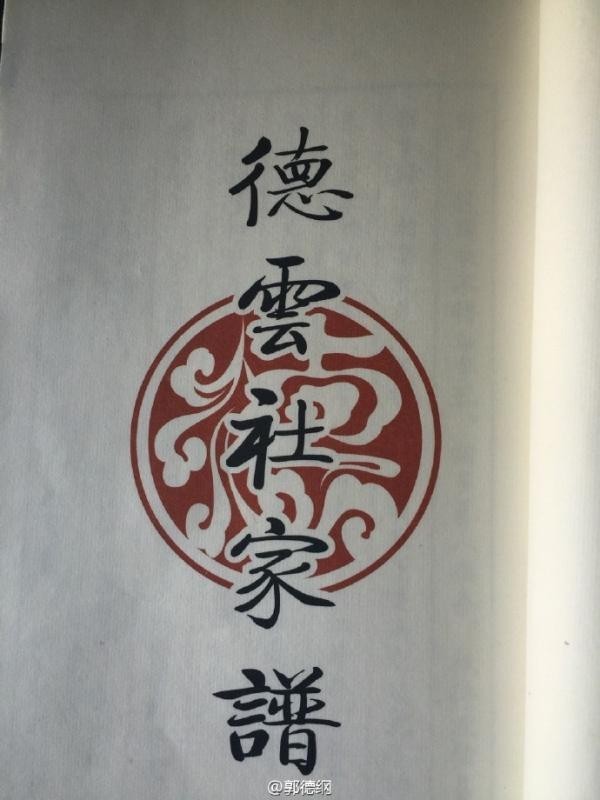 德雲社家譜
@郭德纲